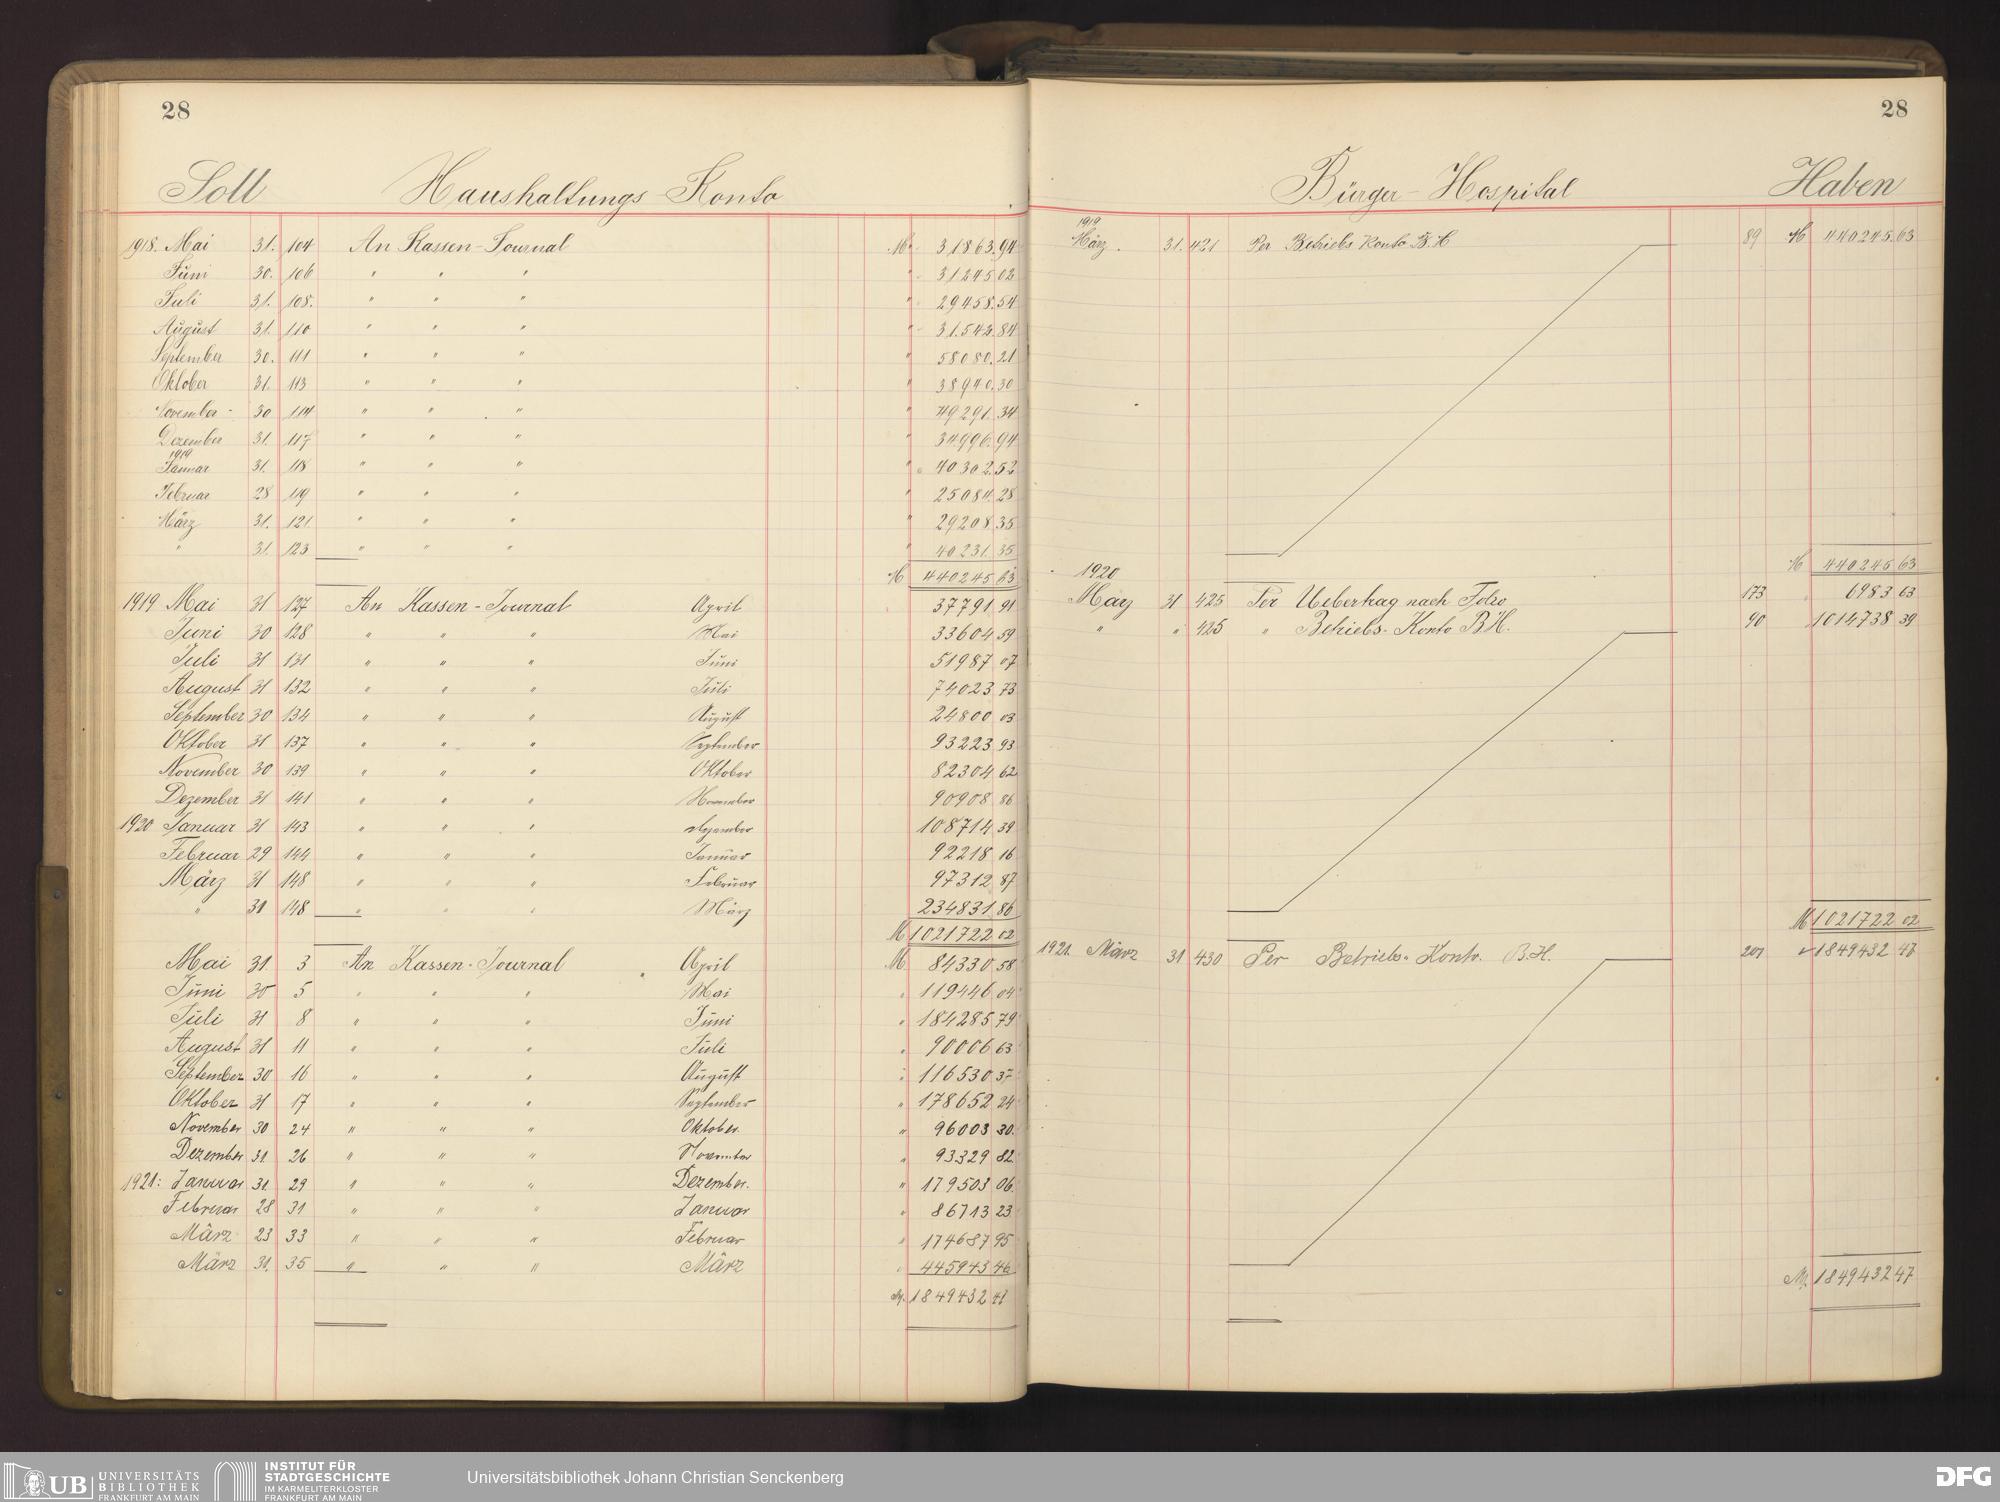 28
Soll Haushaltungs-Konto
1918. Mai 31. 104 An Kassen-Journal M. 31863.94
Juni 30. 106 " " " " 31245 02
Juli 31. 108. " " " " 29458.54
August 31. 110 " " " " 31542.84
September 30. 111 " " " " 58080.21
Oktober 31. 113 " " " " 38940.30
November 30 114 " " " " 49291.34
Dezember 31. 117 " " " " 34996.94
1919
Januar 31. 118 " " " " 40302.52
Februar 28 119 " " " " 25084.28
März 31. 121. " " " " 29208 35
" 31. 123 " " " " 40231.35
M 440245 63
1919 Mai 31 127 An Kassen-Journal April 37791 91
Juni 30 128 " " " Mai 33604 59
Juli 31 131 " " " Juni 51987 07
August 31 132 " " " Juli 74023 73
September 30 134 " " " August 24800 03
Oktober 31 137 " " " September 93223 93
November 30 139 " " " Oktober 82304 62
Dezember 31 141 " " " November 90908 86
1920 Januar 31 143 " " " Dezember 108714 39
Februar 29 144 " " " Januar 92218 16
März 31 148 " " " Februar 97312 87
" 31 148 " " " März 234831 86
M 1021722 02
Mai 31. 3 An Kassen-Journal April M 84330 58
Juni 30 5 " " " Mai " 119446 04
Juli 31 8 " " " Juni " 184285 79
August 31 11 " " " Juli " 90006 63
September 30 16 " " " August " 116530 37
Oktober 31 17 " " " September " 178652 24
November 30 24 " " " Oktober. " 96003 30.
Dezember 31. 26 " " " November " 93329 82
1921: Januar 31. 29 " " " Dezember. " 179503 06.
Februar 28 31 " " " Januar " 86713 23
März 23 33 " " " Februar " 174687 95
März 31. 35 " " " März " 445943 46
M. 1849432 47
28
Bürger-Hospital Haben
1919
März. 31. 421 Per Betriebs Konto B.H 89 M 440245.63
M 440245 63
1920
März 31 425 Per Uebertrag nach Folio 173 6983 63
" " 425 " Betriebs-Konto B.H. 90 1014738 39
M 1021722 02
1921. März 31 430 Per Betriebs-Konto. B.H. 201 1849432 47
M. 1849432 47
UB UNIVERSITÄTS
BIBLIOTHEK
FRANKFURT AM MAIN
INSTITUT FÜR
STADTGESCHICHTE
IM KARMELITERKLOSTER
FRANKFURT AM MAIN
Universitätsbibliothek Johann Christian Senckenberg
DFG